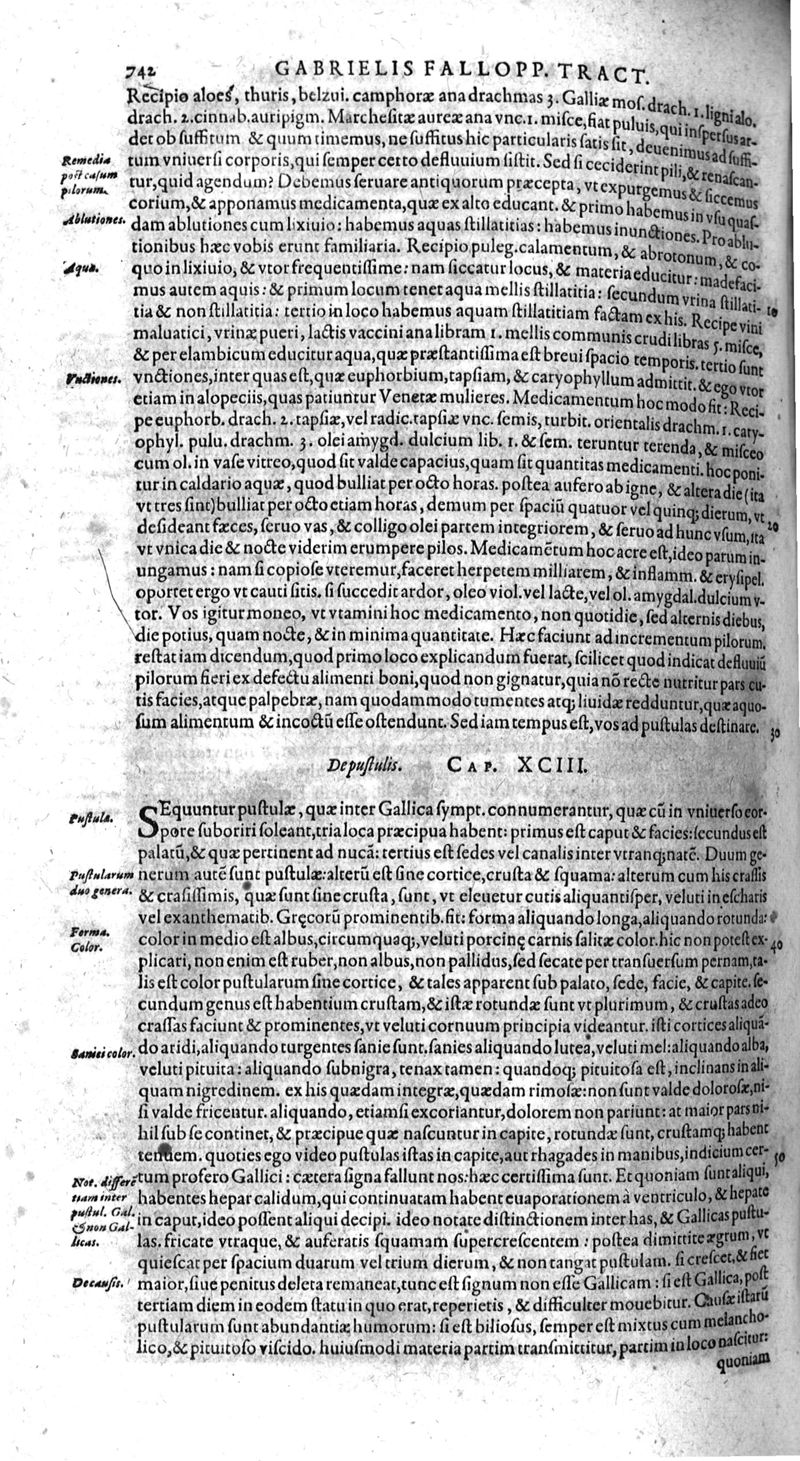 742 GABRIELIS FALLOPP. TRACT.
Recipio aloes, thuris, belzui. camphoræ ana drachmas 3. Galliæ mos. drach. 1. ligni alo.
drach. 2. cinnab. auripigm. Marchesitæ aureæ ana vnc. 1. misce, fiat puluis, qui inspersus ar-
det ob suffitum & quum timemus, ne suffitus hic particularis satis sit, deuenimus ad suffi-
Remedia post casum pilorum.
tum vniuersi corporis, qui semper certo defluuium sistit. Sed si ceciderint pili, & renascan-
tur, quid agendum? Debemus seruare antiquorum præcepta, vt expurgemus & siccemus
corium, & apponamus medicamenta, quæ ex alto educant. & primo habemus in vsu quas-
Ablutiones.
dam ablutiones cum lixiuio: habemus aquas stillatitias: habemus inunctiones. Pro ablu-
tionibus hæc vobis erunt familiaria. Recipio puleg. calamentum, & abrotonum, & co-
Aqua.
quo in lixiuio, & vtor frequentissime: nam siccatur locus, & materia educitur: madefaci-
mus autem aquis: & primum locum tenet aqua mellis stillatitia: secundum vrina stillati-
tia & non stillatitia: tertio in loco habemus aquam stillatitiam factam ex his. Recipe vini 10
maluatici, vrinæ pueri, lactis vaccini ana libram 1. mellis communis crudi libras 5. misce,
& per elambicum educitur aqua, quæ præstantissima est breui spacio temporis. tertio sunt
Vnctiones.
vnctiones, inter quas est, quæ euphorbium, tapsiam, & caryophyllum admittit. & ego vtor
etiam in alopeciis, quas patiuntur Venetæ mulieres. Medicamentum hoc modo fit: Reci-
pe euphorb. drach. 2. tapsiæ, vel radic. tapsiæ vnc. semis, turbit. orientalis drachm. 1. cary-
ophyl. pulu. drachm. 3. olei amygd. dulcium lib. 1. & sem. teruntur terenda, & misceo
cum ol. in vase vitreo, quod sit valde capacius, quam sit quantitas medicamenti. hoc poni-
tur in caldario aquæ, quod bulliat per octo horas. postea aufero ab igne, & altera die (ita
vt tres sint) bulliat per octo etiam horas, demum per spaciū quatuor vel quinq; dierum, vt
desideant fæces, seruo vas, & colligo olei partem integriorem, & seruo ad hunc vsum, ita 20
vt vnica die & nocte viderim erumpere pilos. Medicamētum hoc acre est, ideo parum in-
ungamus: nam si copiose vteremur, faceret herpetem milliarem, & inflamm. & erysipel.
oportet ergo vt cauti sitis. si succedit ardor, oleo viol. vel lacte, vel ol. amygdal. dulcium v-
tor. Vos igitur moneo, vt vtamini hoc medicamento, non quotidie, sed alternis diebus,
die potius, quam nocte, & in minima quantitate. Hæc faciunt ad incrementum pilorum.
restat iam dicendum, quod primo loco explicandum fuerat, scilicet quod indicat defluuiū
pilorum fieri ex defectu alimenti boni, quod non gignatur, quia nō recte nutritur pars cu-
tis facies, atque palpebræ, nam quodammodo tumentes atq; liuidæ redduntur, quæ aquo-
sum alimentum & incoctū esse ostendunt. Sed iam tempus est, vos ad pustulas destinare. 30
De pustulis. CAP. XCIII.
Pustula.
SEquuntur pustulæ, quæ inter Gallica sympt. connumerantur, quæ cū in vniuerso cor-
pore suboriri soleant, tria loca præcipua habent: primus est caput & facies: secundus est
palatū, & quæ pertinent ad nucā: tertius est sedes vel canalis inter vtranq; natē. Duum ge-
Pustularum duo genera.
nerum autē sunt pustulæ: alterū est sine cortice, crusta & squama: alterum cum his crassis
& crassissimis, quæ sunt sine crusta, sunt, vt eleuetur cutis aliquantisper, veluti in escharis
vel exanthematib. Gręcorū prominentib. fit: forma aliquando longa, aliquando rotunda:
Forma.
Color.
color in medio est albus, circumquaq;, veluti porcinę carnis salitæ color. hic non potest ex- 40
plicari, non enim est ruber, non albus, non pallidus, sed secate per transuersum pernam, ta-
lis est color pustularum sine cortice, & tales apparent sub palato, sede, facie, & capite. se-
cundum genus est habentium crustam, & istæ rotundæ sunt vt plurimum, & crustas adeo
crassas faciunt & prominentes, vt veluti cornuum principia videantur. isti cortices aliquā-
Saniei color.
do aridi, aliquando turgentes sanie sunt. sanies aliquando lutea, veluti mel: aliquando alba,
veluti pituita: aliquando subnigra, tenax tamen: quandoq; pituitosa est, inclinans in ali-
quam nigredinem. ex his quædam integræ, quædam rimosæ: non sunt valde dolorosæ, ni-
si valde fricentur. aliquando, etiamsi excoriantur, dolorem non pariunt: at maior pars ni-
hil sub se continet, & præcipue quæ nascuntur in capite, rotundæ sunt, crustamq; habent
tenuem. quoties ego video pustulas istas in capite, aut rhagades in manibus, indicium cer- 50
Not. differētiam inter pustul. Gal. & non Gallicas.
tum profero Gallici: cætera signa fallunt nos: hæc certissima sunt. Et quoniam sunt aliqui,
habentes hepar calidum, qui continuatam habent euaporationem à ventriculo, & hepate
in caput, ideo possent aliqui decipi. ideo notate distinctionem inter has, & Gallicas pustu-
las. fricate vtraque, & auferatis squamam supercrescentem: postea dimittite ægrum, vt
quiescat per spacium duarum vel trium dierum, & non tangat pustulam. si crescet, & fiet
De causis.
maior, siue penitus deleta remaneat, tunc est signum non esse Gallicam: si est Gallica, post
tertiam diem in eodem statu in quo erat, reperietis, & difficulter mouebitur. Causæ istarū
pustularum sunt abundantiæ humorum: si est biliosus, semper est mixtus cum melancho-
lico, & pituitoso viscido. huiusmodi materia partim transmittitur, partim in loco nascitur:
quoniam